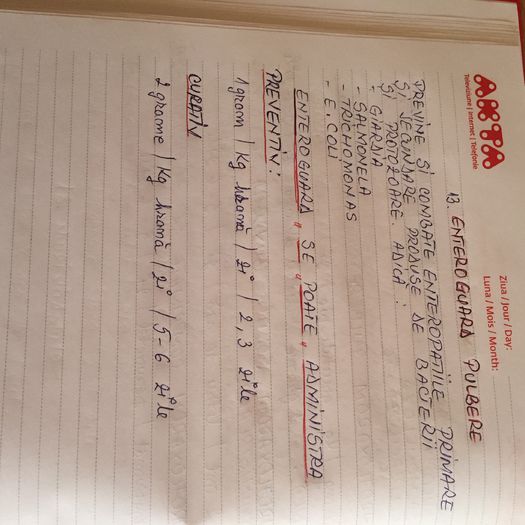 AKTA
Televiziune | Internet | Telefonie
Ziua / Jour / Day:
Luna / Mois / Month:
13. ENTEROGUARD PULBERE
PREVINE SI COMBATE ENTEROPATIILE PRIMARE
SI SECUNDARE PRODUSE DE BACTERII
SI PROTOZOARE. ADICA:
- GIARDIA
- SALMONELA
- TRICHOMONAS
- E. COLI
ENTEROGUARD „ SE „ POATE „ ADMINISTRA
PREVENTIV:
1 gram / Kg hrană / zi / 2, 3 zile
CURATIV
2 grame / Kg hrană / zi / 5-6 zile